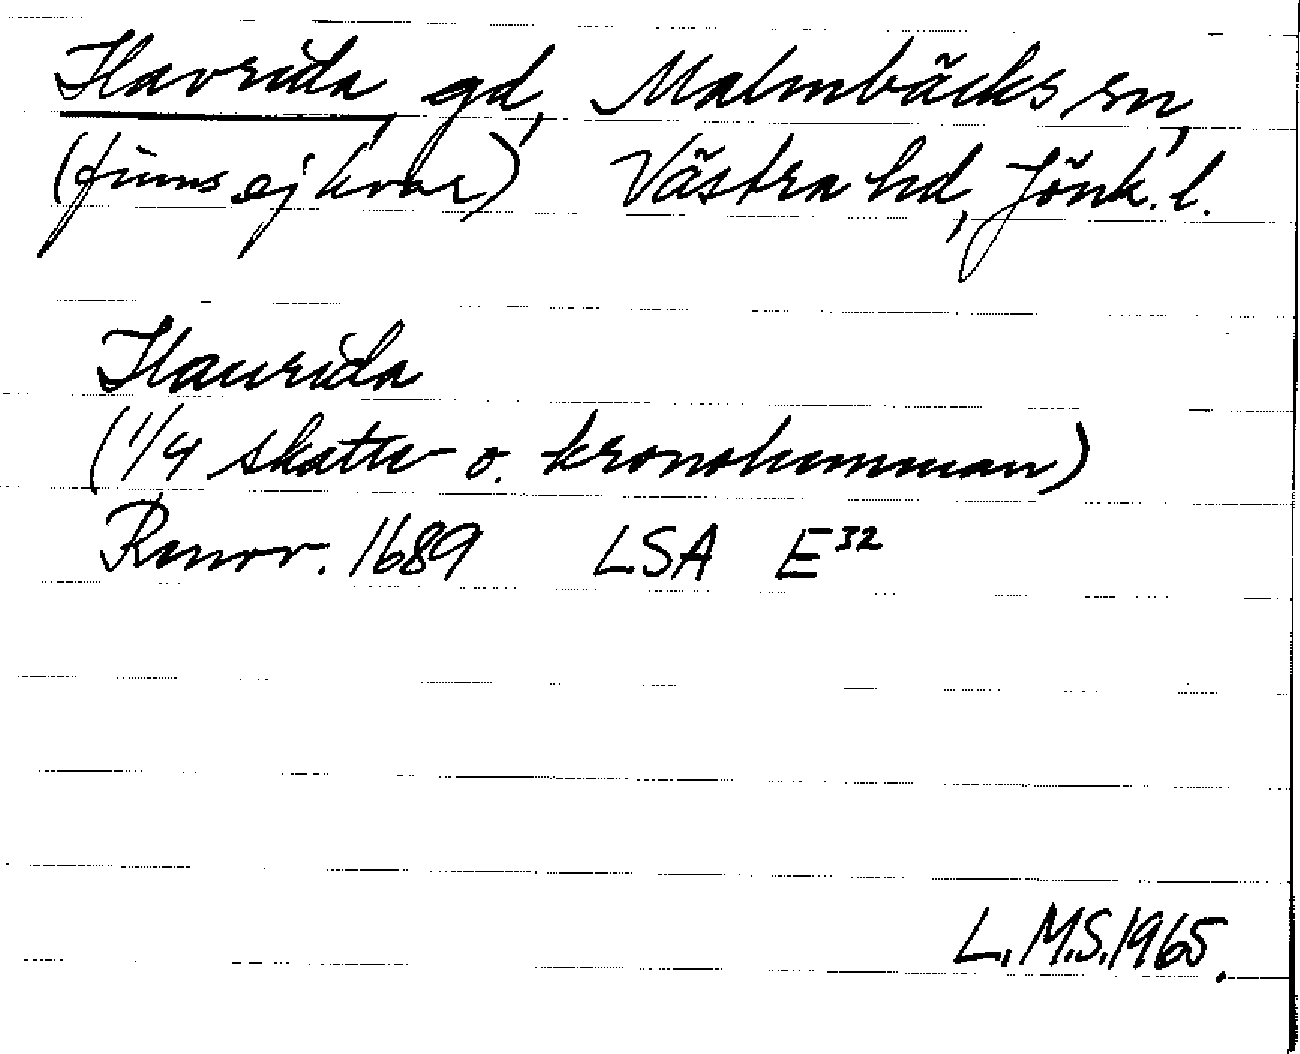 Havrida, gd, Malmbäcks sn,
(finns ej kvar) Västra hd, Jönk. l.
Haurida
(1/4 skatte o. kronohemman)
Ransv. 1689 LSA E32
L.M.S. 1965.